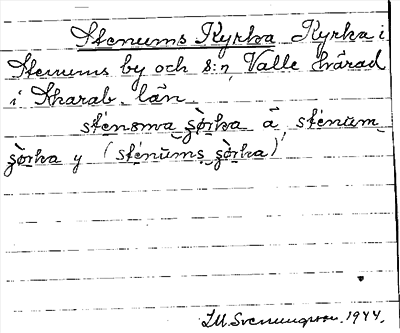 Stenums Kyrka Kyrka i
Stenums by och s:n, Valle härad
i Skarab. län
sténsma șòrka ä, sténum
șòrka y (sténùms șòrka)
I.M. Svennungsson. 1944.